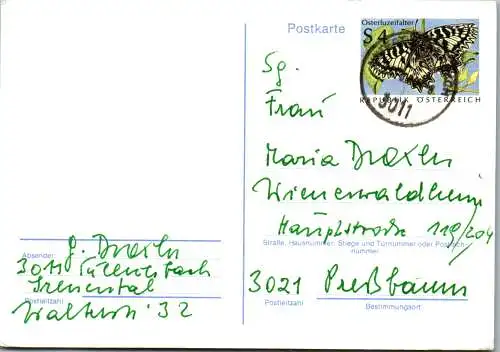 Postkarte
Osterluzeifalter
S 4
REPUBLIK ÖSTERREICH
3011
Sg.
Frau
Maria Drexler
Wienerwaldheim
Hauptstraße 119/204
Straße, Hausnummer, Stiege und Türnummer oder Postfach-
nummer
3021 Preßbaum
Postleitzahl
Bestimmungsort
Absender:
J. Drexler
3011
Irenental
32
Postleitzahl